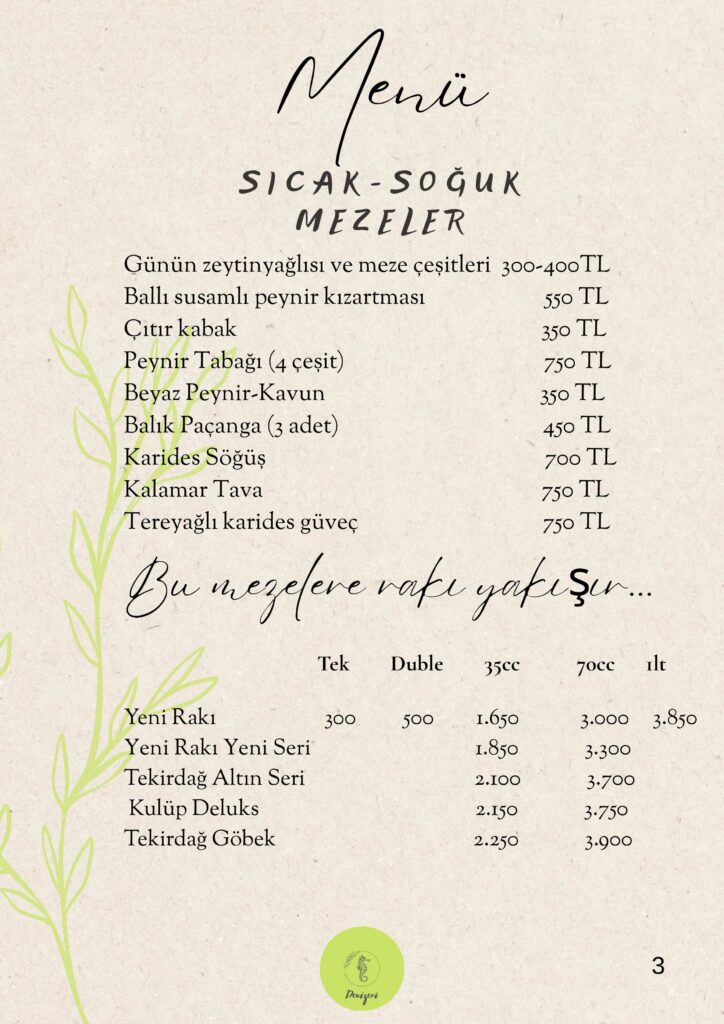 Menü
SICAK-SOĞUK
MEZELER
Günün zeytinyağlısı ve meze çeşitleri 300-400TL
Ballı susamlı peynir kızartması 550 TL
Çıtır kabak 350 TL
Peynir Tabağı (4 çeşit) 750 TL
Beyaz Peynir-Kavun 350 TL
Balık Paçanga (3 adet) 450 TL
Karides Söğüş 700 TL
Kalamar Tava 750 TL
Tereyağlı karides güveç 750 TL
Bu mezelere rakı yakışır...
Tek Duble 35cc 70cc 1lt
Yeni Rakı 300 500 1.650 3.000 3.850
Yeni Rakı Yeni Seri 1.850 3.300
Tekirdağ Altın Seri 2.100 3.700
Kulüp Deluks 2.150 3.750
Tekirdağ Göbek 2.250 3.900
3